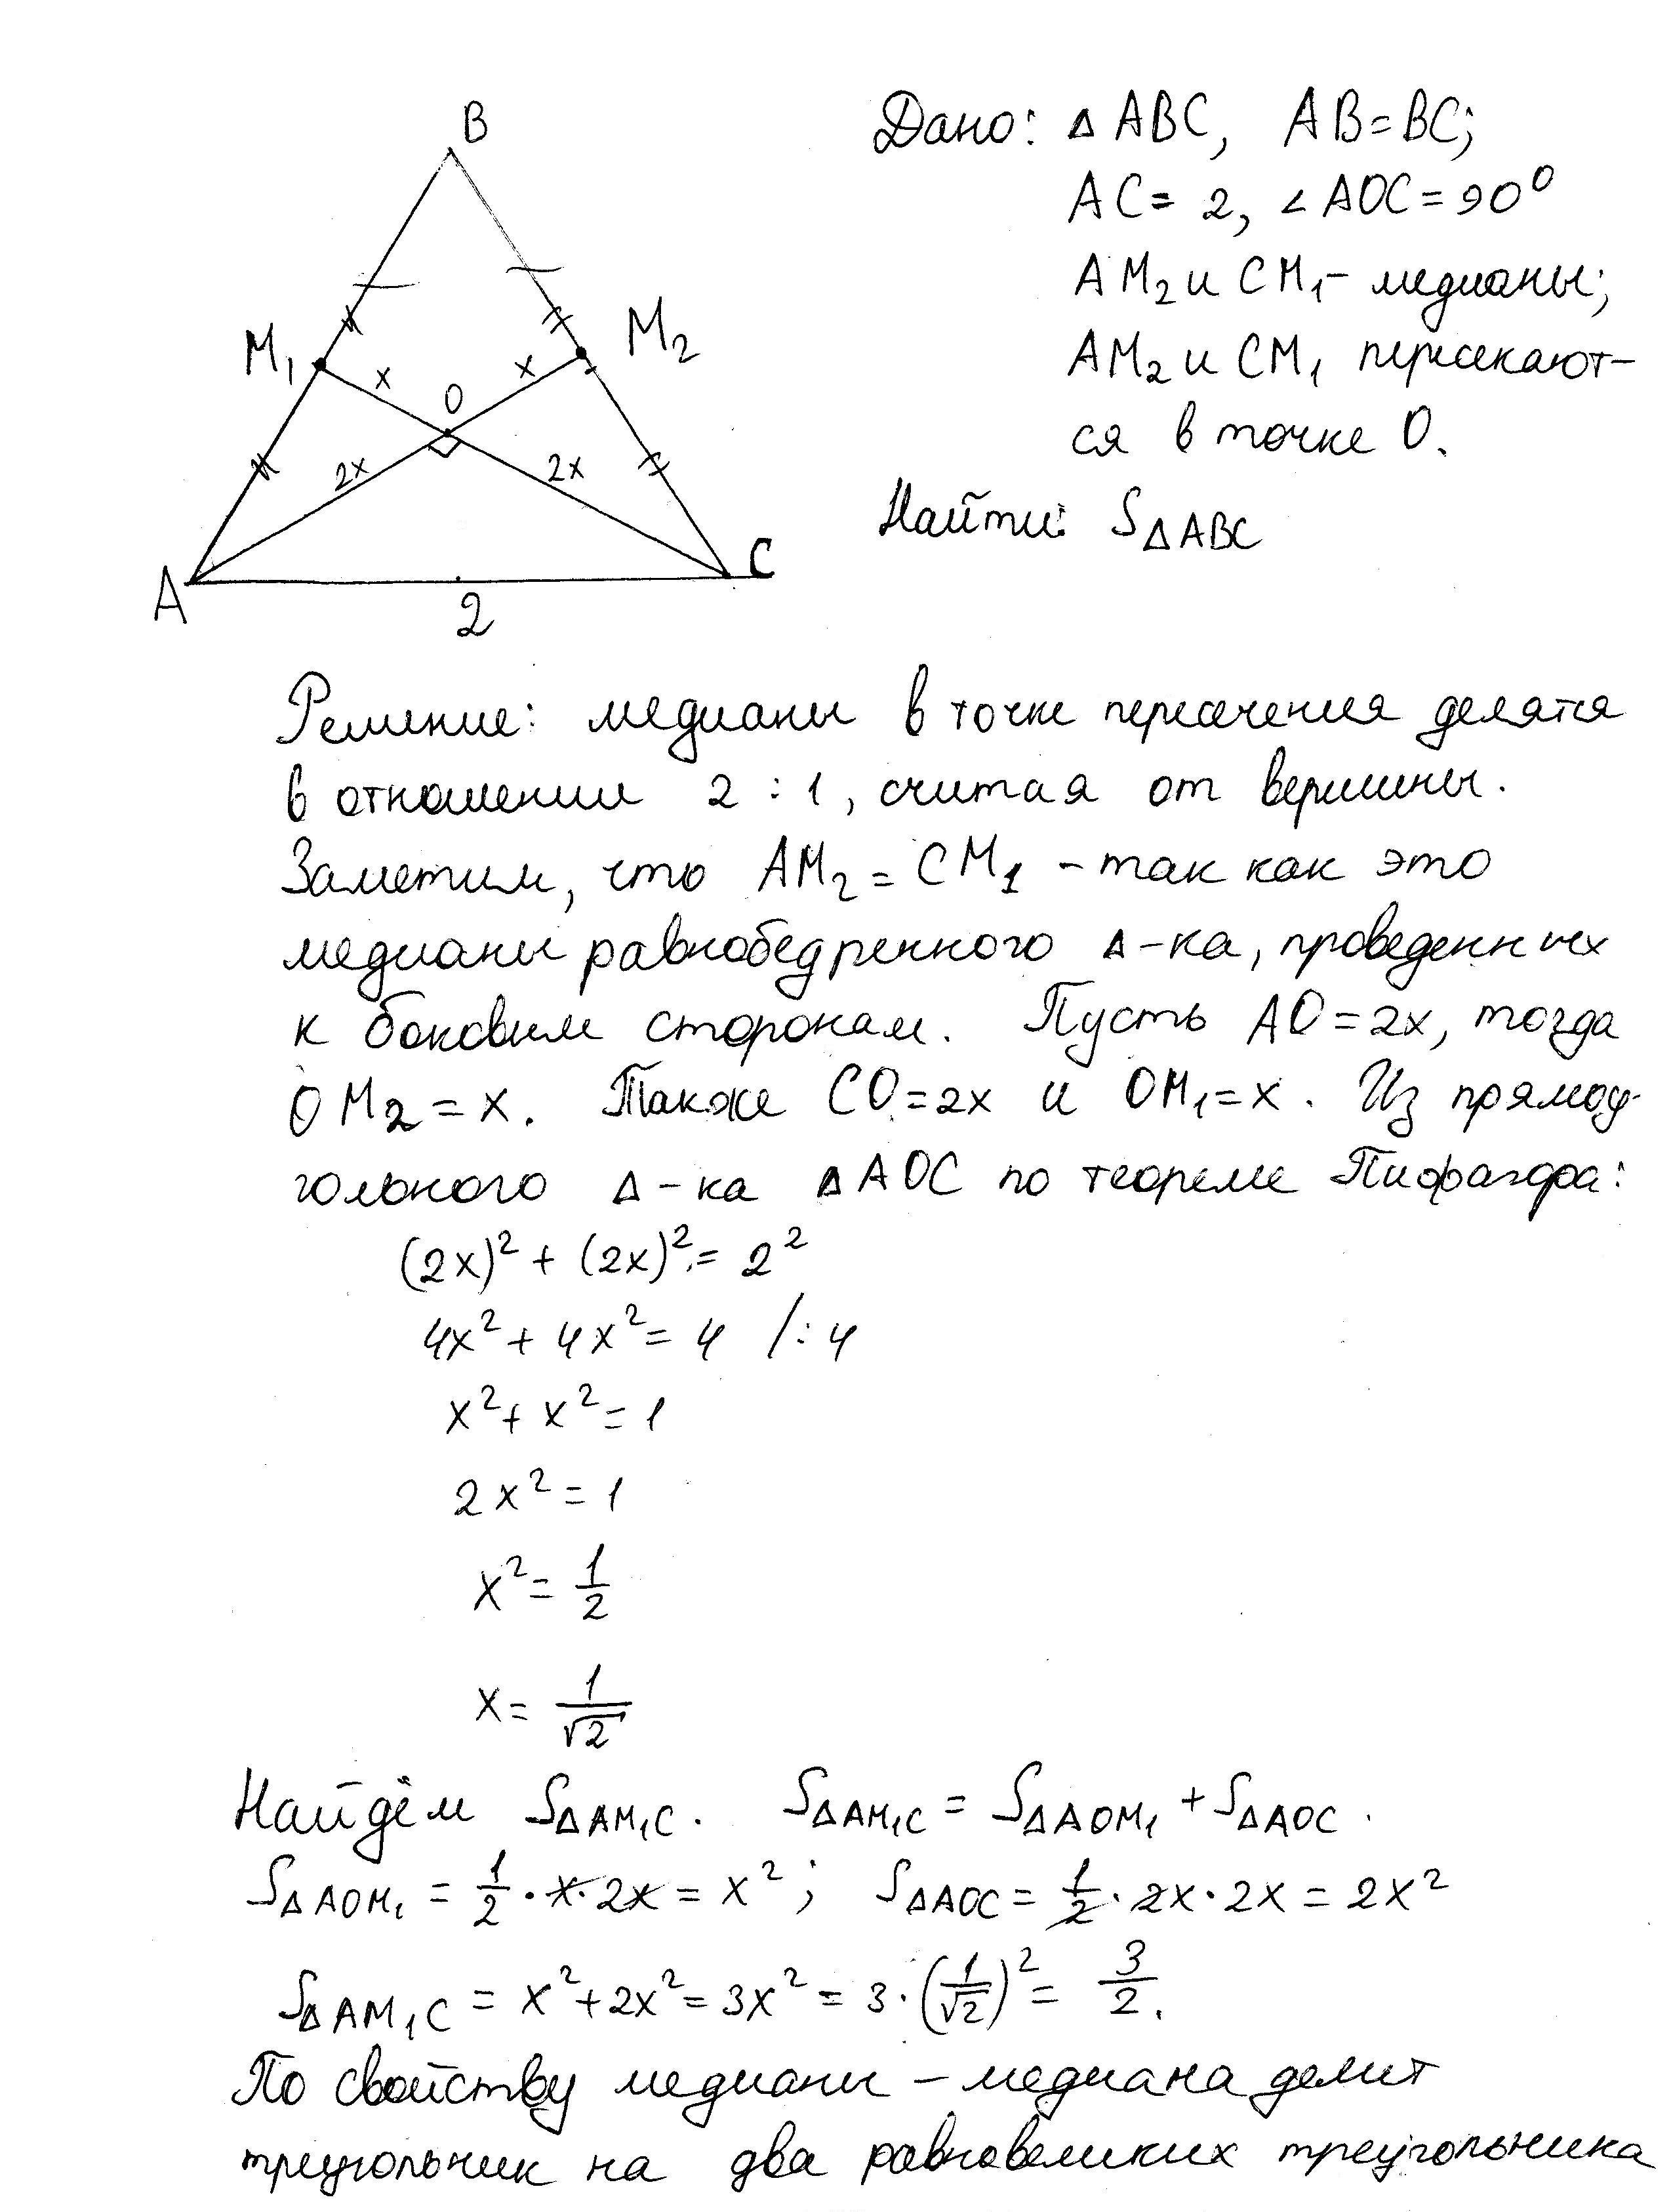 B
M₁
M₂
x
x
O
2x
2x
A
C
2
Дано: Δ ABC, AB=BC;
AC= 2, ∠AOC=90⁰
AM₂ и CM₁- медианы;
AM₂ и CM₁ пересекают-
ся в точке O.
Найти: S ΔABC
Решение: медианы в точке пересечения делятся
в отношении 2 : 1, считая от вершины.
Заметим, что AM₂ = CM₁ - так как это
медианы равнобедренного Δ-ка, проведенных
к боковым сторонам. Пусть AO=2x, тогда
OM₂ = x. Также CO=2x и OM₁=x. Из прямоу-
гольного Δ-ка ΔAOC по теореме Пифагора:
(2x)² + (2x)² = 2²
4x² + 4x² = 4 /: 4
x² + x² = 1
2x² = 1
x² = 1/2
x = 1/√2
Найдём S ΔAM₁C. S ΔAM₁C = S ΔAOM₁ + S ΔAOC.
S ΔAOM₁ = 1/2 · x · 2x = x²; S ΔAOC = 1/2 · 2x · 2x = 2x²
S ΔAM₁C = x² + 2x² = 3x² = 3 · (1/√2)² = 3/2.
По свойству медианы - медиана делит
треугольник на два равновеликих треугольника